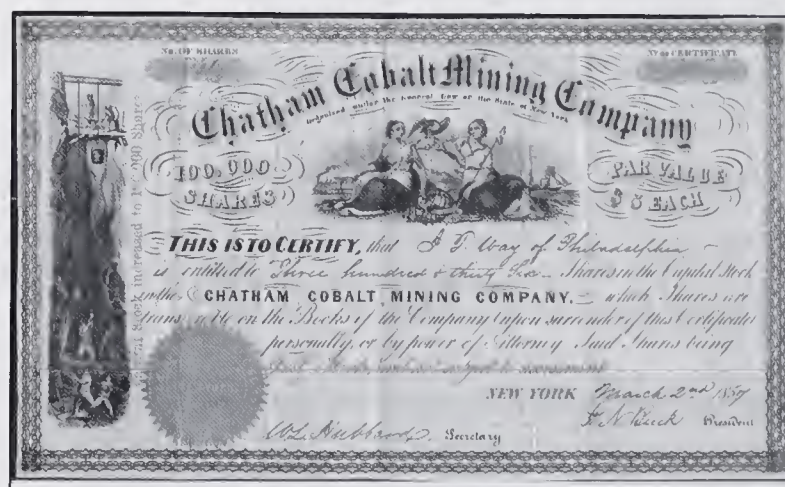 No. OF SHARES
No. OF CERTIFICATE
Chatham Cobalt Mining Company
Organized under the General Law of the State of New York
100,000 SHARES
PAR VALUE $5 EACH
Stock increased to
THIS IS TO CERTIFY, that of Philadelphia
is entitled to Three hundred & thirty Shares in the Capital Stock
in the CHATHAM COBALT MINING COMPANY, which Shares are
on the Books of the Company upon surrender of this Certificate
personally, or by power of Attorney Said Shares being
NEW YORK March 2nd 1857
Secretary
President